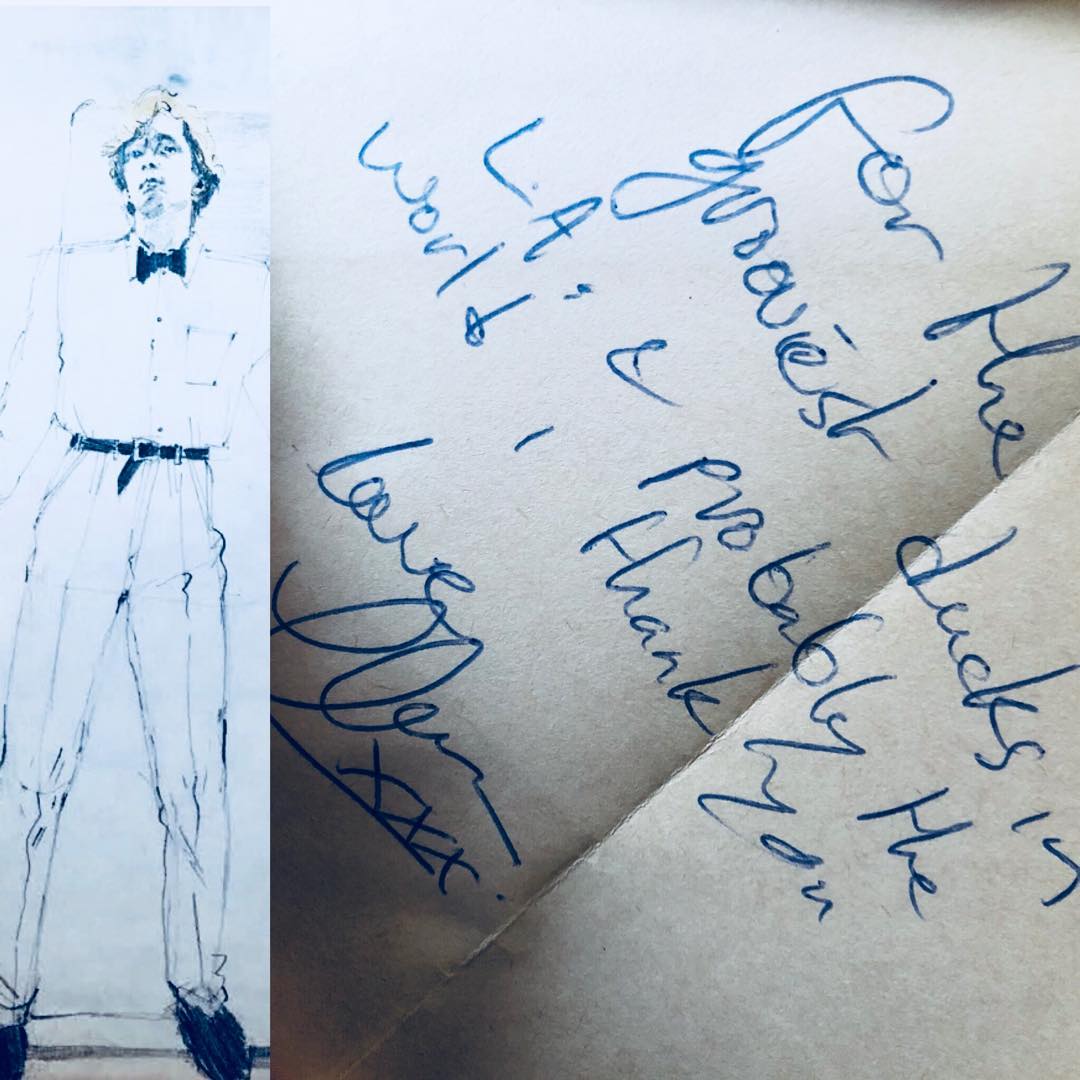 For the
grooviest ducks in
L.A. & probably the
world, thank you
love
xxx.